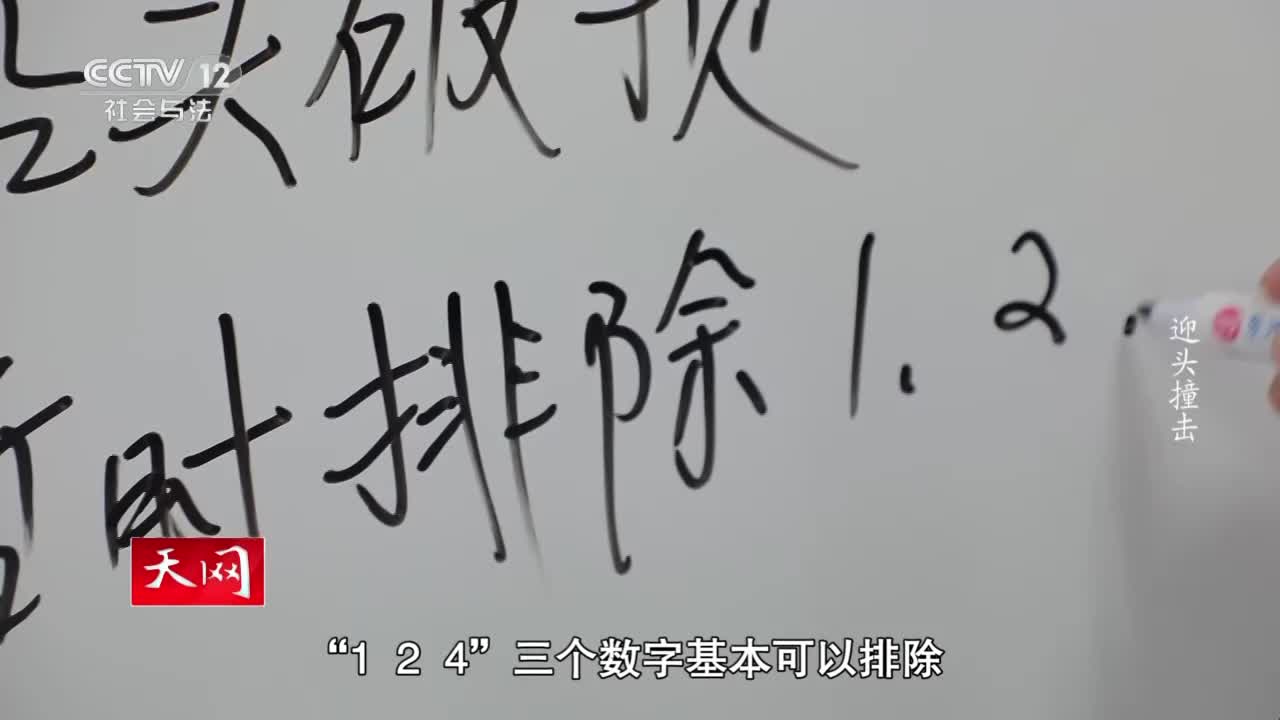 CCTV 12
社会与法
头破损
暂时排除1.2
迎头撞击
天网
“1 2 4”三个数字基本可以排除